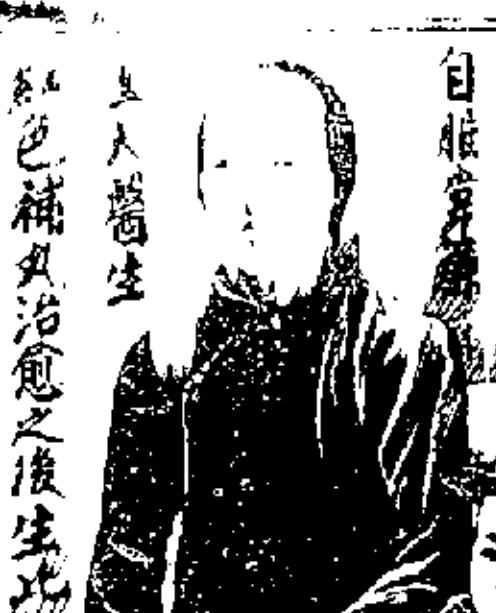 自服韋廉
士大醫生
紅色補丸治愈之後生